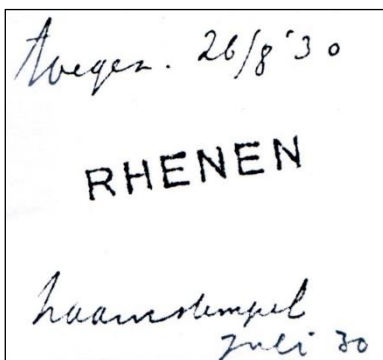 Toegez. 26/8 '30
RHENEN
naamstempel
juli 30